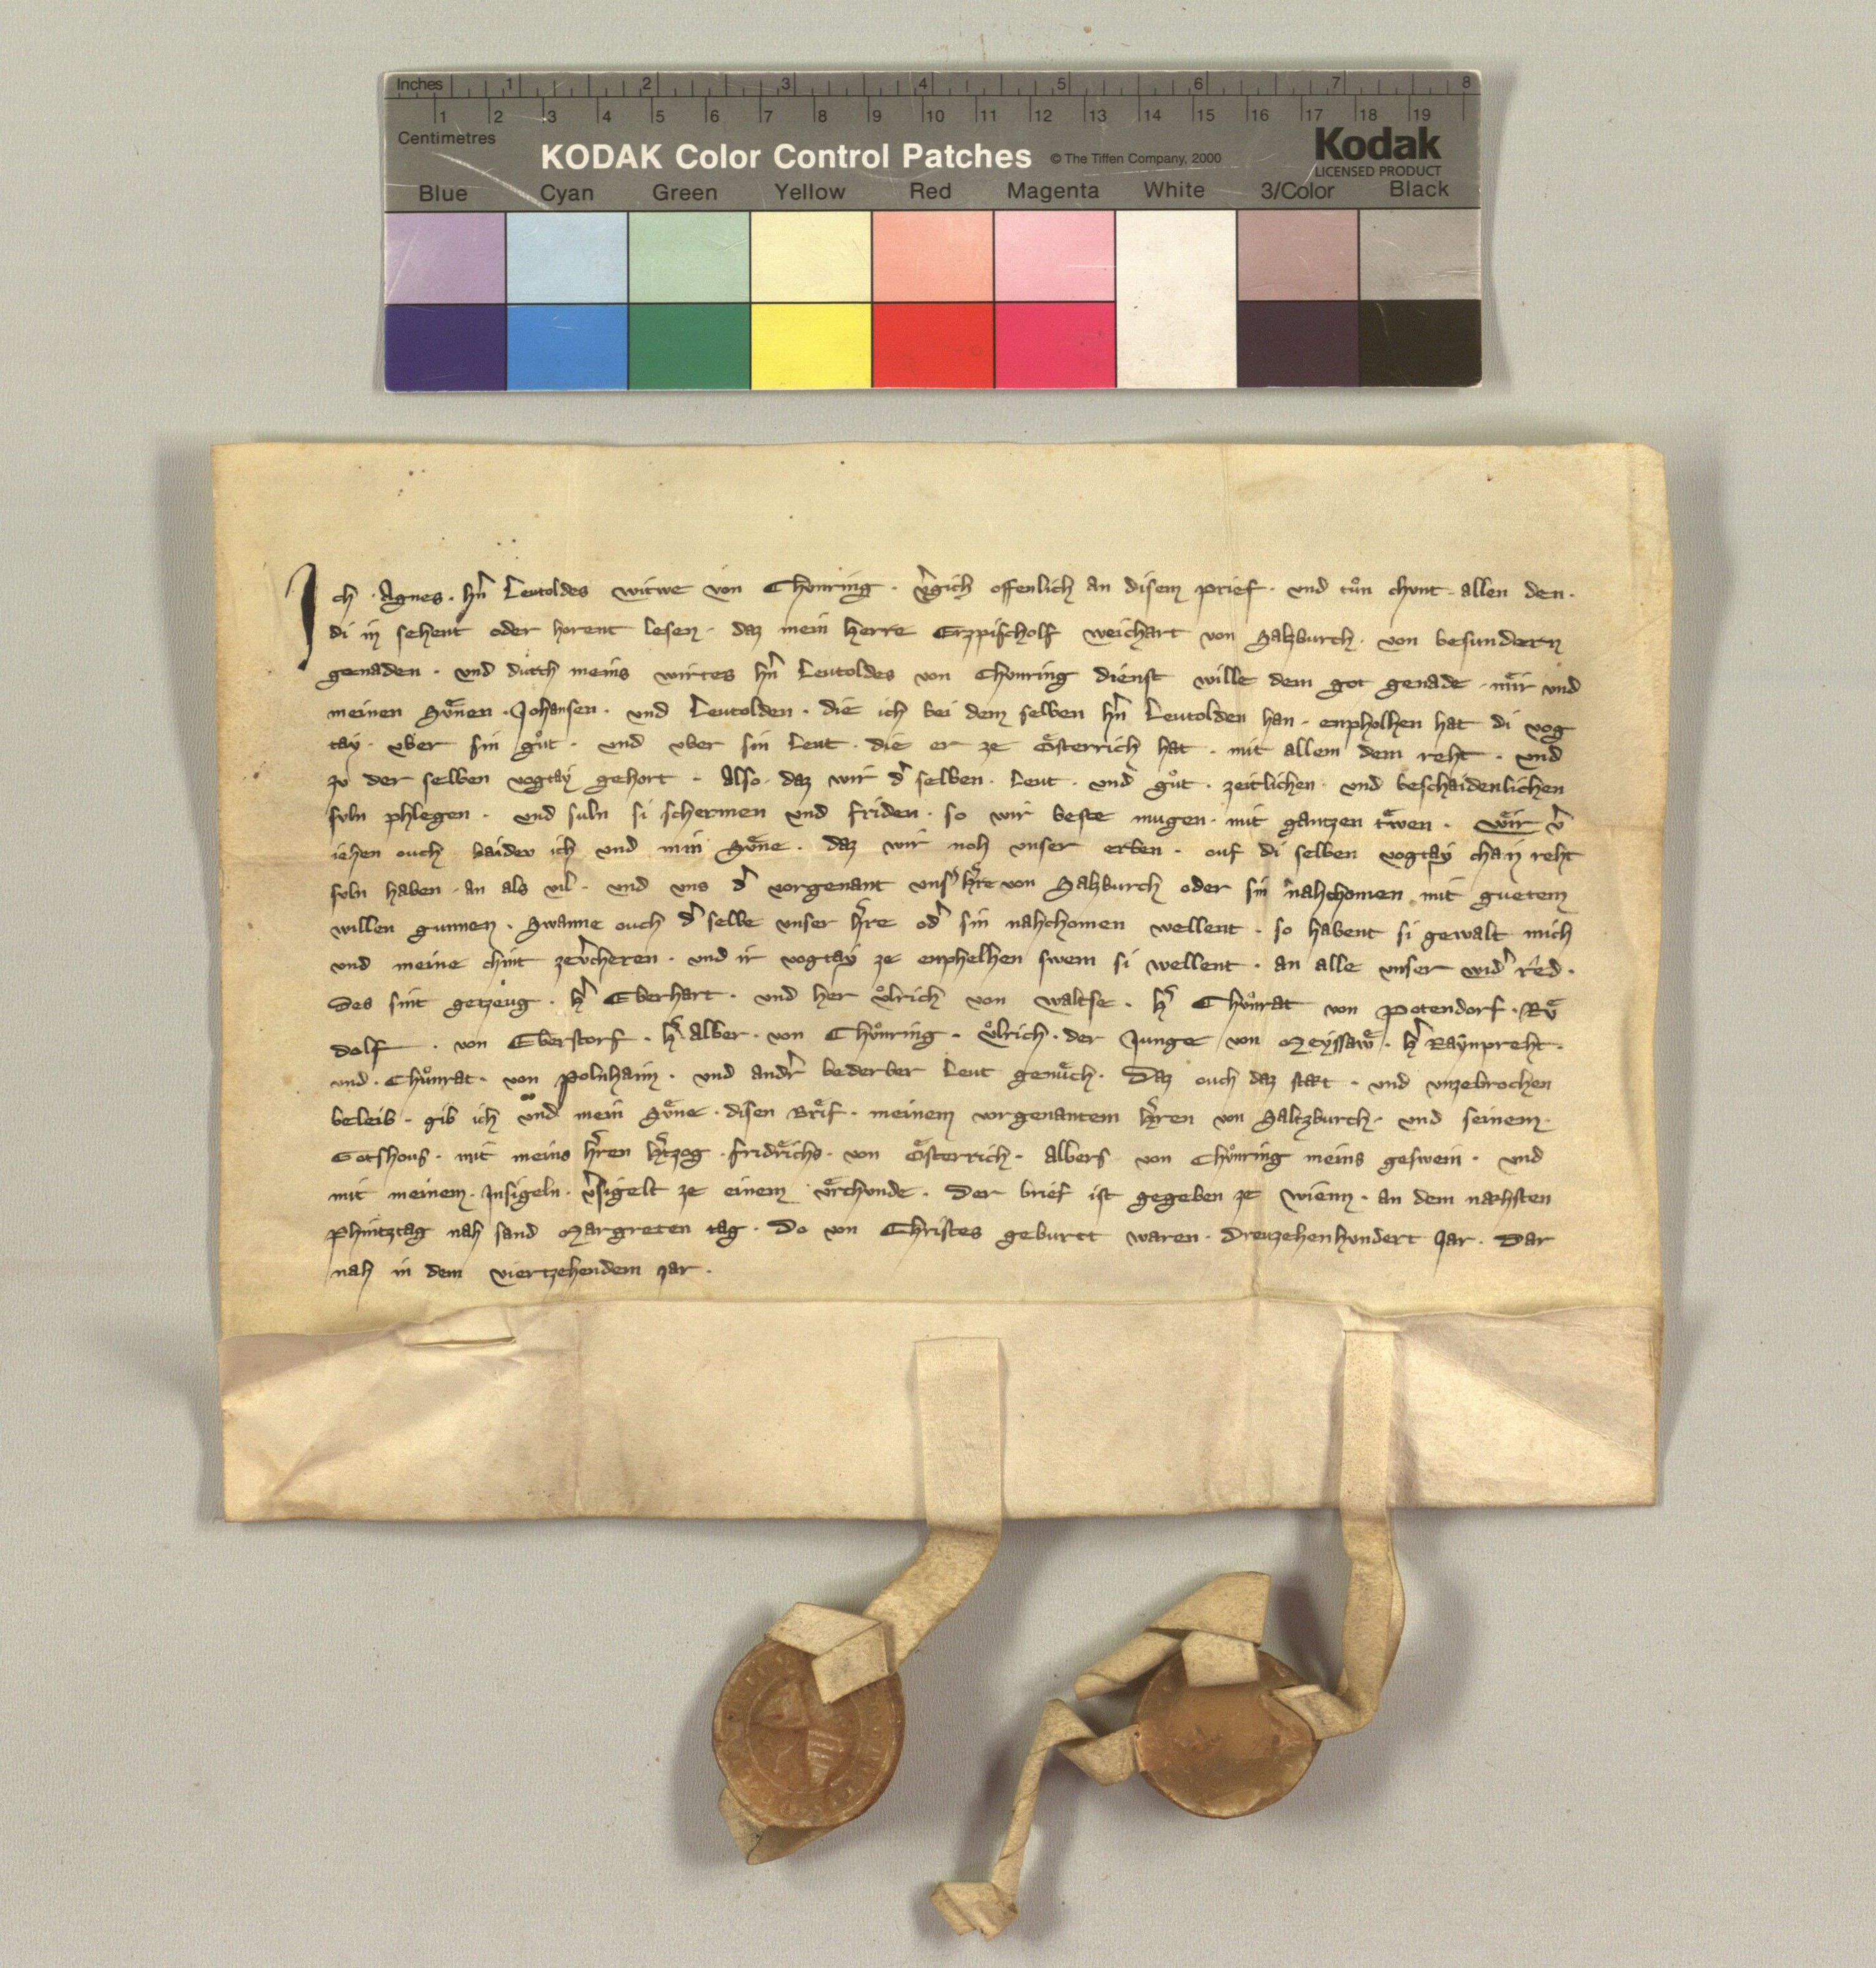 Inches 1 2 3 4 5 6 7 8
1 2 3 4 5 6 7 8 9 10 11 12 13 14 15 16 17 18 19
Centimetres
KODAK Color Control Patches © The Tiffen Company, 2000 Kodak
LICENSED PRODUCT
Blue Cyan Green Yellow Red Magenta White 3/Color Black
Ich · Agnes · hn̄ Leutoldes witwe von Chvnring · v̾gich offenlich an disem prief · vnd tůn chvnt · allen den ·
di in sehent oder horent lesen · daz mein herre Erzpischolf weichart von Salzburch · von besundern
genaden · vnd durch meins wirtes hn̄ Leutoldes von Chvnring dienst wille dem got genade · mir vnd
meinen Svͤnen · Johansen · vnd Leutolden · die ich bei dem selben hn̄ Leutolden han · enpholhen hat di vog
tay · vber sin gůt · vnd vber sin Leut · die er ze Österrich hat · mit allem dem reht · vnd
zv der selben vogtay gehort · Also · daz wir d̾ selben · Leut · vnd gůt · zeitlichen · vnd beschaidenlichen
svln phlegen · vnd suln si schermen vnd friden · so wir beste mugen · mit gantzen trͤwen · wir v̾
iehen ouch baidev ich vnd min Svͤne · daz wir noh vnser erben · ouf di selben vogtay chain reht
svln haben · an als vil · vnd vns d̾ vorgenant vns̾ h̾re von Salzburch oder sin nahchomen mit guetem
willen gunnen · Swanne ouch d̾ selbe vnser h̾re od̾ sin nahchomen wellent · so habent si gewalt mich
vnd meine chint zev̾cheren · vnd ir vogtay ze enphelhen swem si wellent · an alle vnser wid̾ red ·
Des sint getzeug · h̾ Eberhart · vnd her vͦlrich von waltse · h̾ Chvͦnrat von Potendorf · Rvͤ
dolf · von Eberstorf · h̾ Alber · von Chvͦnring · vͦlrich · der Junge von Meyssaw · h̾ Raynpreht ·
vnd · Chvͦnrat · von Polnhaim · vnd andr̾ bederber Leut genuͤch · Daz ouch daz stæt · vnd vnzebrochen
beleib · gib ich vnd mein Svͤne · disen Brͤif · meinem vorgenantem h̾ren von Saltzburch · vnd seinem ·
Gotshous · mit meins h̾ren h̾tzog · fridrͤichs · von Österrich · Albers von Chvͦnring meins geswein · vnd
mit meinem · Insigeln · v̾sigelt ze einem vrͤchvnde · Der brief ist gegeben ze wienn · an dem næhsten
Phintztag nah sand Margreten tag · Do von Christes geburtt waren · Dreuzehenhvndert Jar · Dar
nah in dem viertzehendem Jar ·